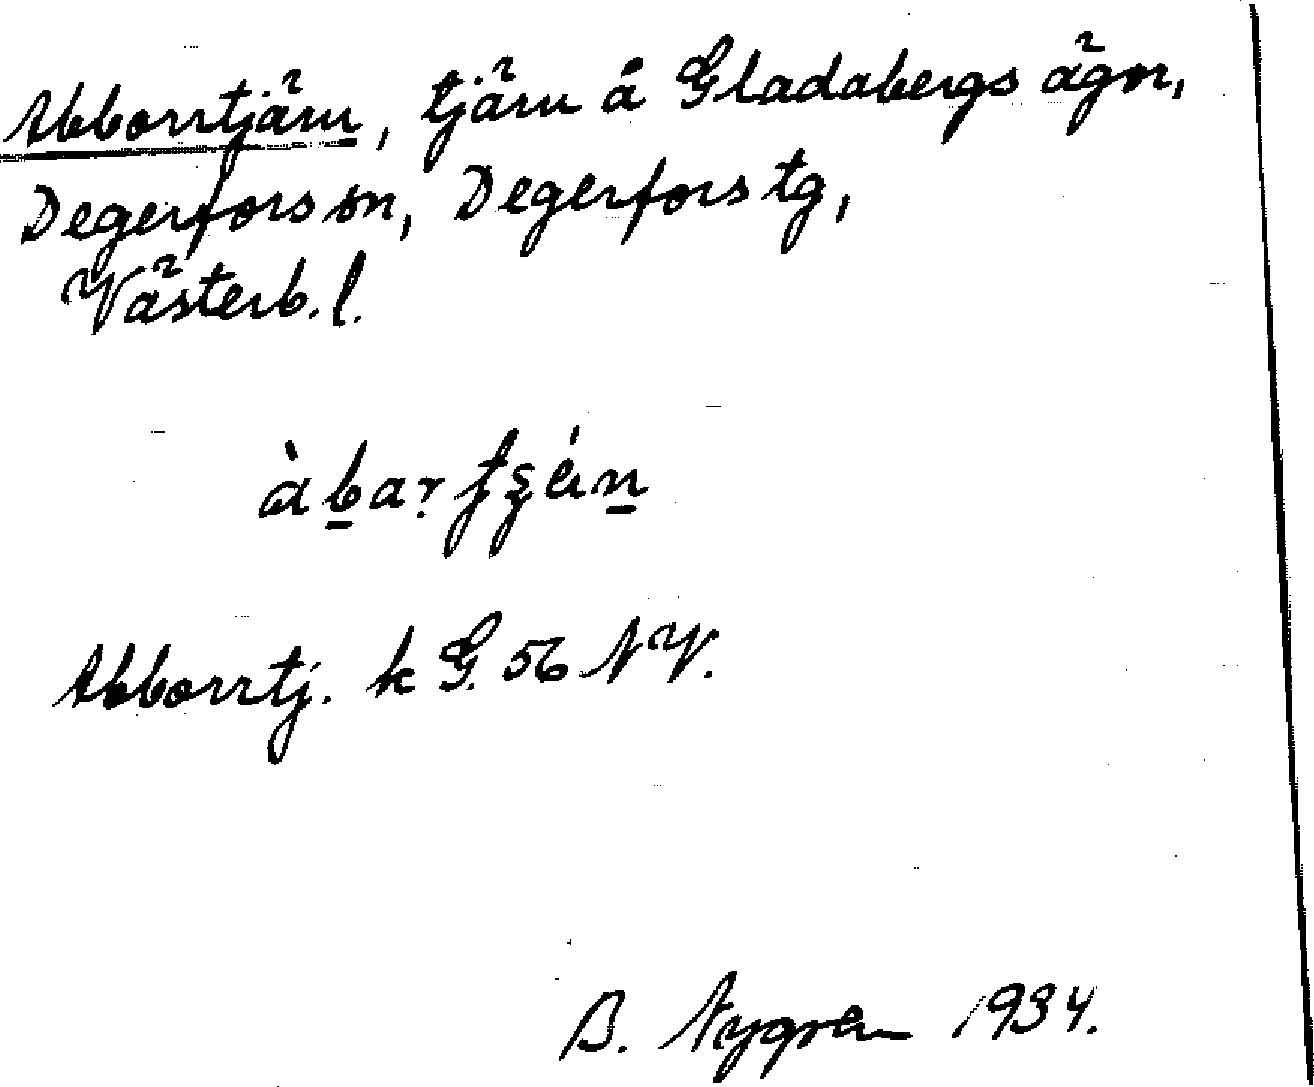 Abborrtjärn, tjärn å Gladabergs ägor,
Degerfors sn, Degerfors tg,
Västerb. l.
Abborrtj. k G. 56 NV.
B. Nygren 1934.